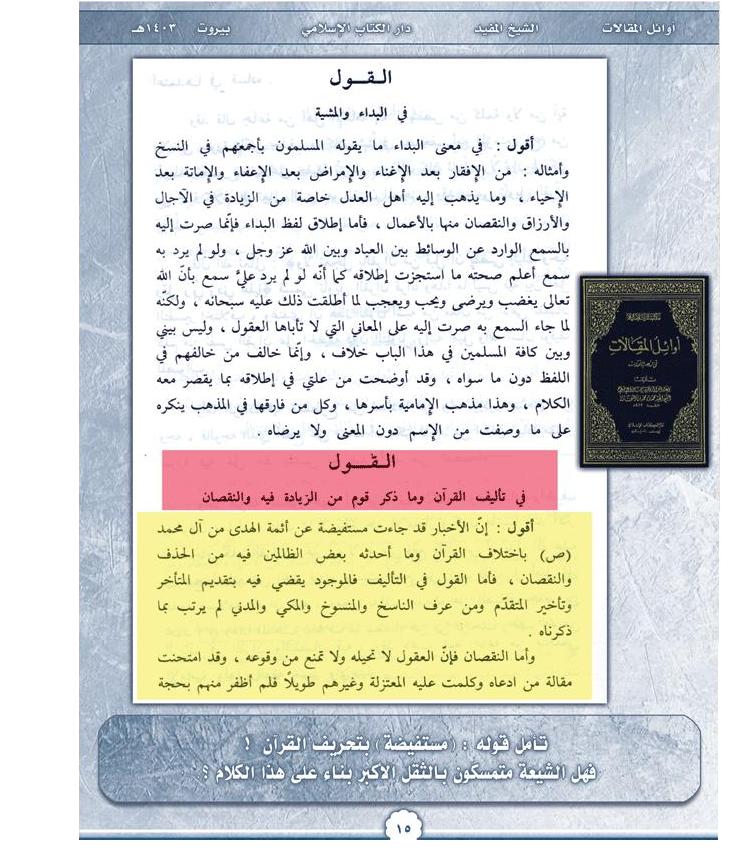 أوائل المقالات الشيخ المفيد دار الكتاب الإسلامي بيروت ١٤٠٣هـ
القول
في البداء والمشية
أقول : في معنى البداء ما يقوله المسلمون بأجمعهم في النسخ
وأمثاله : من الإفقار بعد الإغناء والإمراض بعد الإعفاء والإماتة بعد
الإحياء ، وما يذهب إليه أهل العدل خاصة من الزيادة في الآجال
والأرزاق والنقصان منها بالأعمال ، فأما إطلاق لفظ البداء فإنّما صرت إليه
بالسمع الوارد عن الوسائط بين العباد وبين الله عز وجل ، ولو لم يرد به
سمع أعلم صحته ما استجزت إطلاقه كما أنّه لو لم يرد عليّ سمع بأنّ الله
تعالى يغضب ويرضى ويحب ويعجب لما أطلقت ذلك عليه سبحانه ، ولكنّه
لما جاء السمع به صرت إليه على المعاني التي لا تأباها العقول ، وليس بيني
وبين كافة المسلمين في هذا الباب خلاف ، وإنّما خالف من خالفهم في
اللفظ دون ما سواه ، وقد أوضحت من علتي في إطلاقه بما يقصر معه
الكلام ، وهذا مذهب الإمامية بأسرها ، وكل من فارقها في المذهب ينكره
على ما وصفت من الإسم دون المعنى ولا يرضاه .
القول
في تأليف القرآن وما ذكر قوم من الزيادة فيه والنقصان
أقول : إنّ الأخبار قد جاءت مستفيضة عن أئمة الهدى من آل محمد
(ص) باختلاف القرآن وما أحدثه بعض الظالمين فيه من الحذف
والنقصان ، فأما القول في التأليف فالموجود يقضي فيه بتقديم المتأخر
وتأخير المتقدّم ومن عرف الناسخ والمنسوخ والمكي والمدني لم يرتب بما
ذكرناه .
وأما النقصان فإنّ العقول لا تحيله ولا تمنع من وقوعه ، وقد امتحنت
مقالة من ادعاه وكلمت عليه المعتزلة وغيرهم طويلًا فلم أظفر منهم بحجة
أوائل المقالات
تأمل قوله : (مستفيضة) بتحريف القرآن !
فهل الشيعة متمسكون بالثقل الأكبر بناء على هذا الكلام ؟
١٥